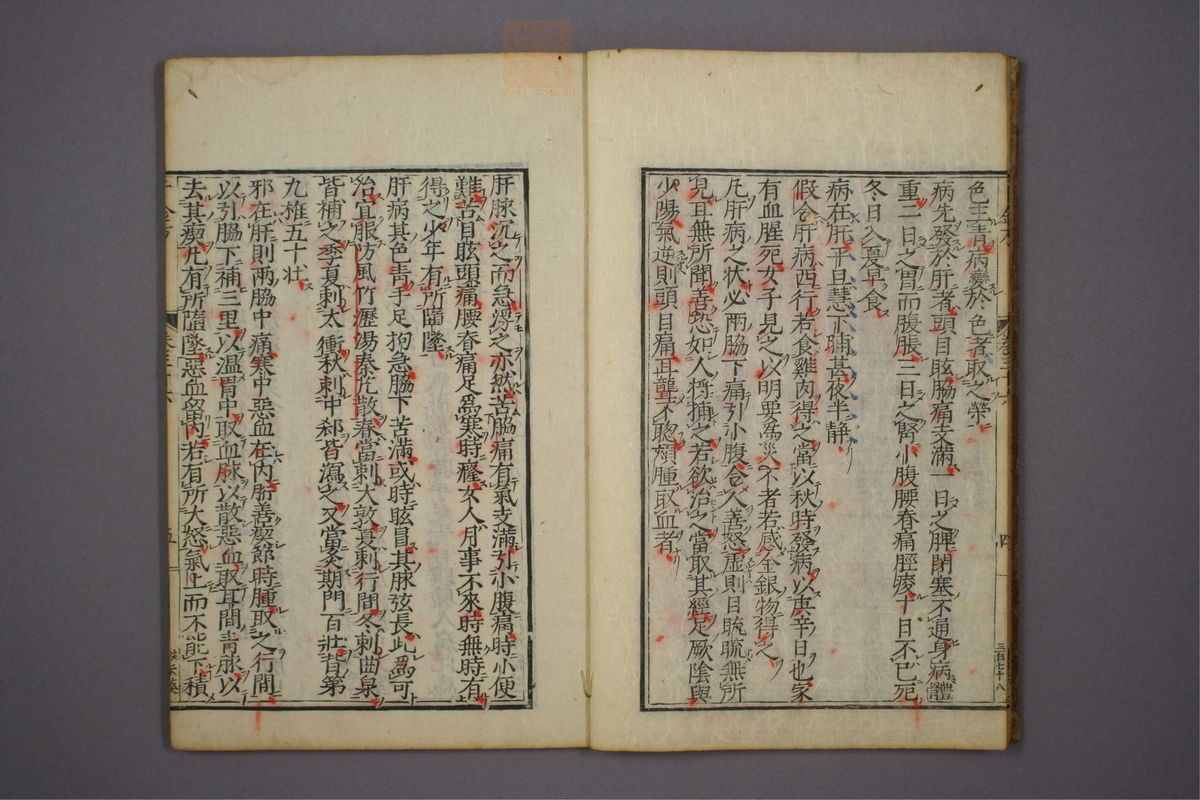 色主青病變於色者取之榮
病先發於肝者頭目眩脇痛支滿一日之脾閉塞不通身病體
重二日之胃而腹脹三日之腎小腹腰脊痛脛痠十日不巳死
冬日入夏早食
病在肝平旦慧下晡甚夜半靜
假令肝病西行若食雞肉得之當以秋時發病以庚辛日也家
有血腥死女子見之以明要爲災不者若感金銀物得之
凡肝病之狀必兩脇下痛引小腹令人善怒虛則目䀮䀮無所
見耳無所聞善恐如人將捕之若欲治之當取其經足厥陰與
少陽氣逆則頭目痛耳聾不聰頰腫取血者
肝脉沉之而急浮之亦然苦脇痛有氣支滿引小腹痛時小便
難苦目眩頭痛腰脊痛足爲寒時癃女人月事不來時無時有
得之少年有所墮墜
肝病其色青手足拘急脇下苦滿或時眩冒其脉弦長此爲可
治宜服防風竹瀝湯秦艽散春當刺大敦夏刺行間冬刺曲泉
皆補之季夏刺太衝秋刺中郄皆瀉之又當灸期門百壯背第
九椎五十壯
邪在肝則兩脇中痛寒中惡血在内胻善瘈節時腫取之行間
以引脇下補三里以溫胃中取血脉以散惡血取耳間青脉以
去其瘈凡有所墮墜惡血留内若有所大怒氣上而不能下積